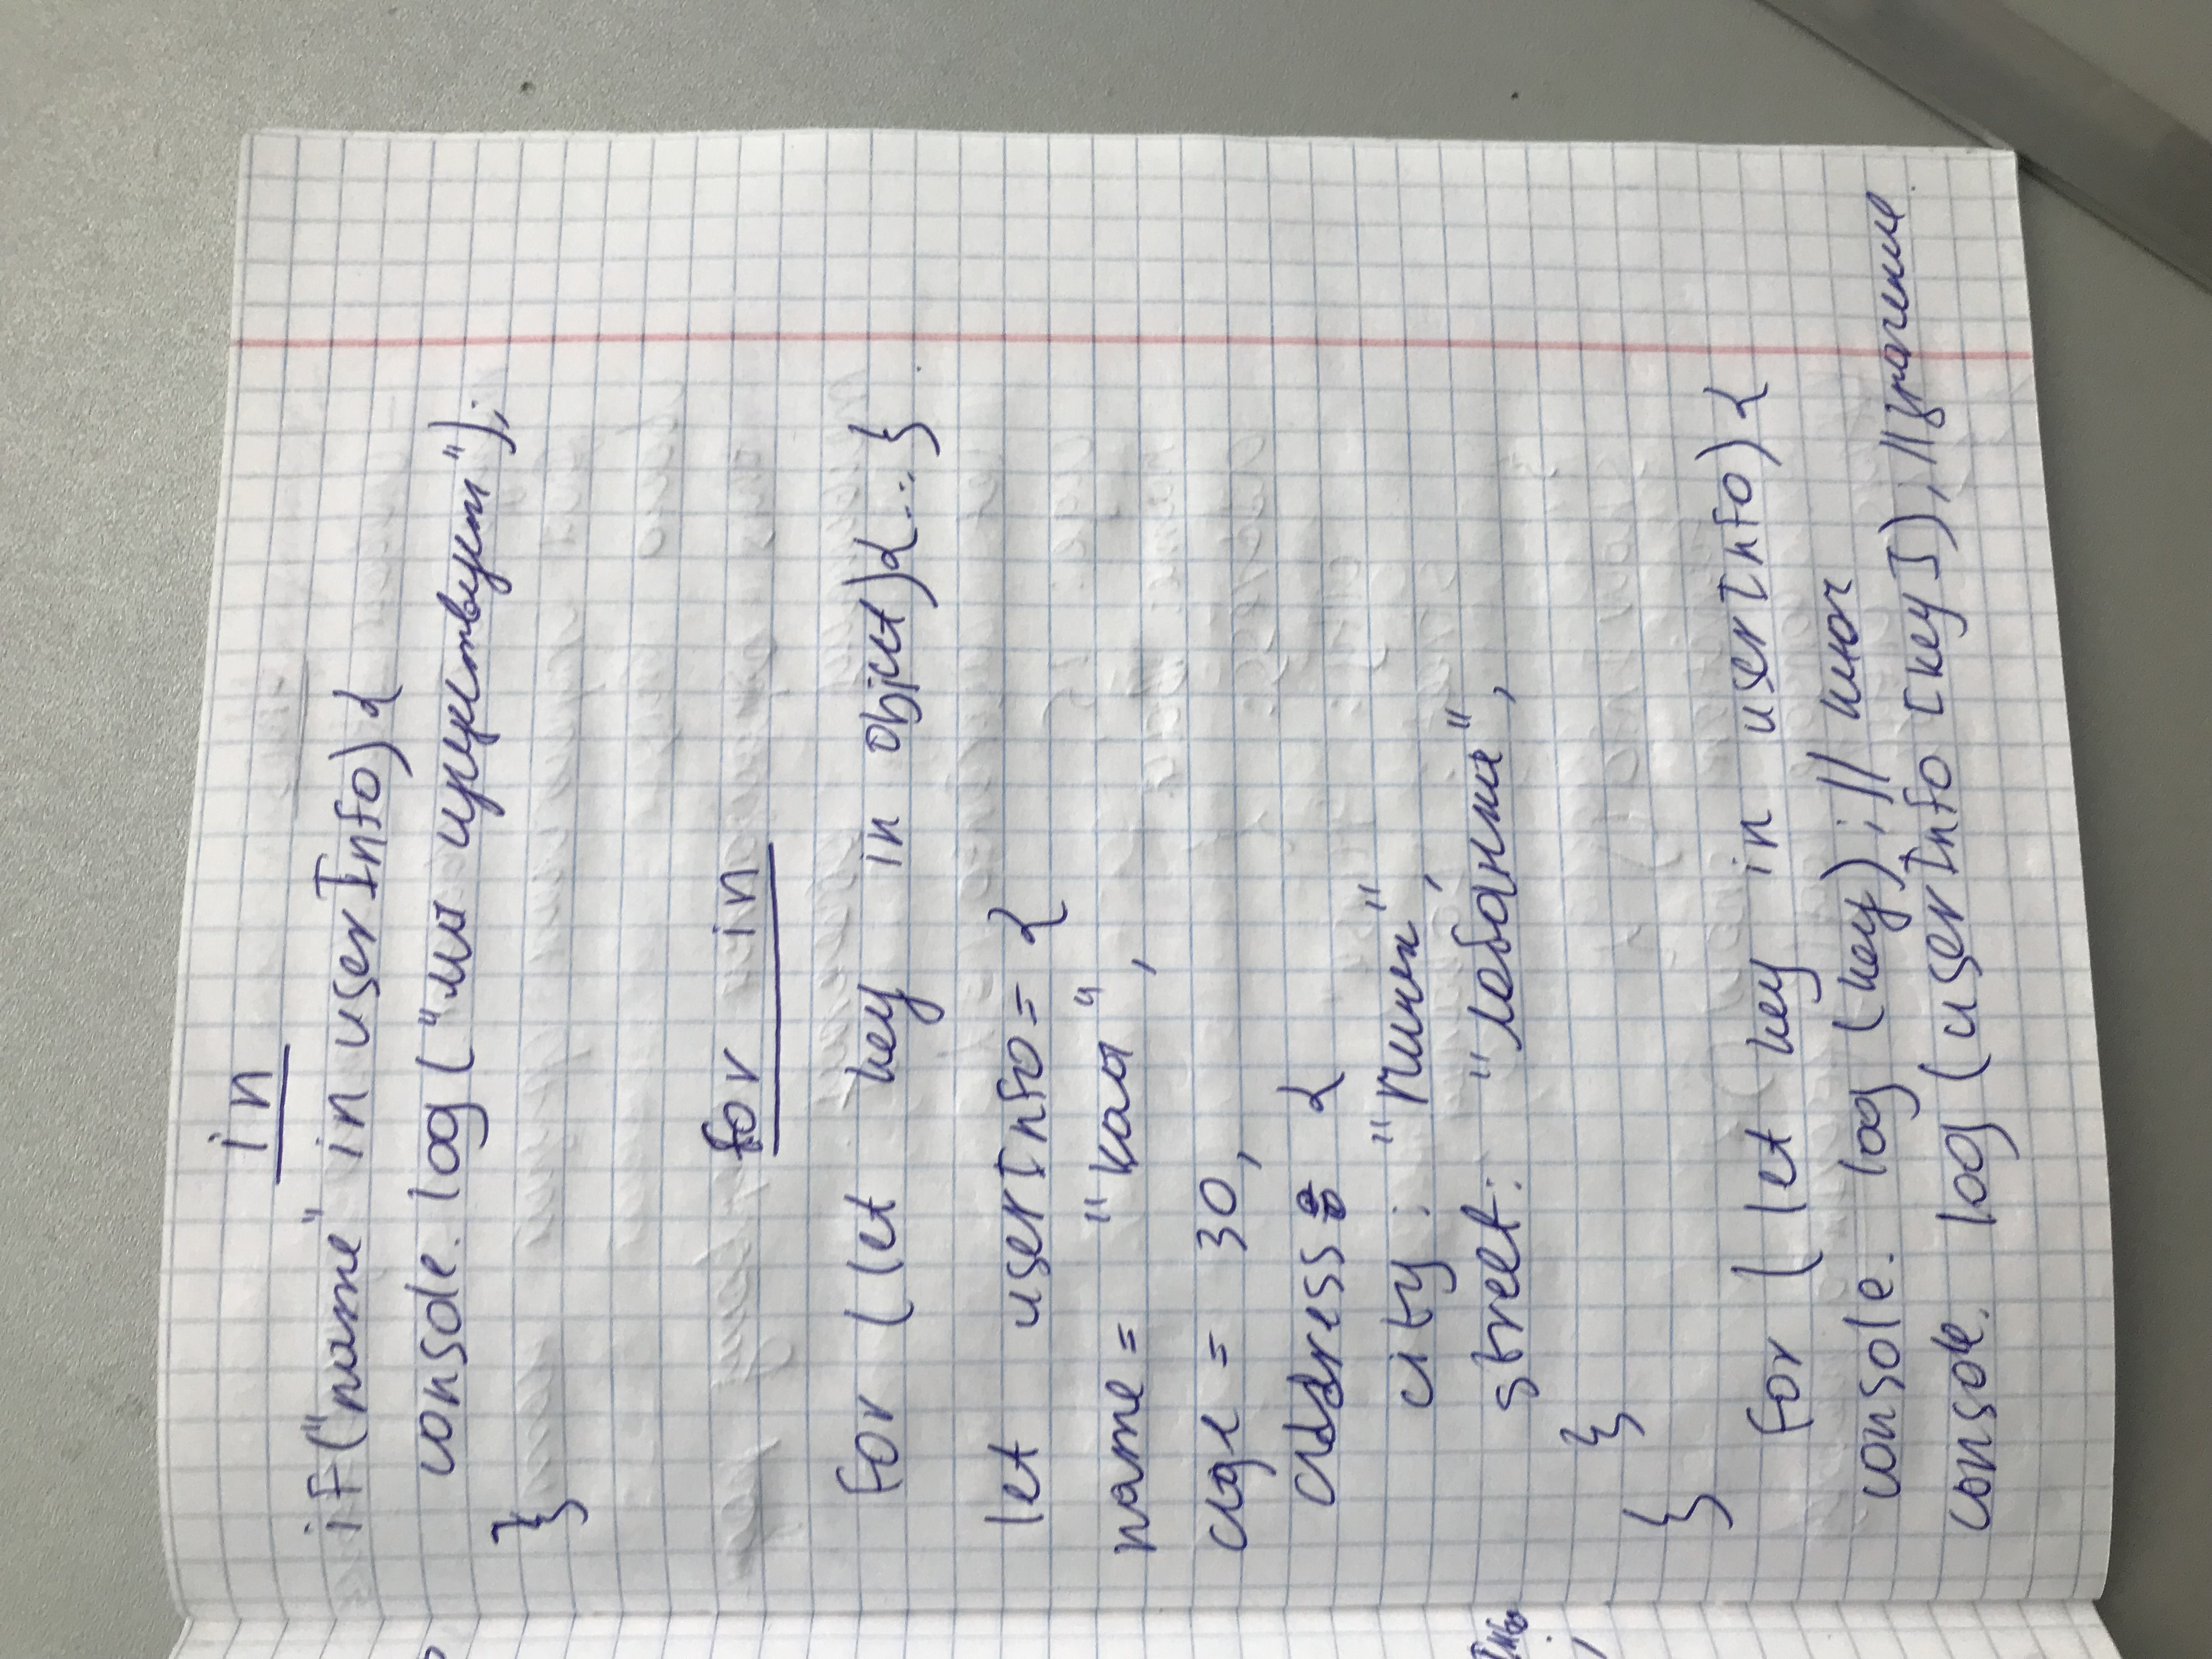 in
if("name" in userInfo){
console. log ("имя существует");
}
for in
for (let key in object){...}
let userInfo = {
name = "Катя",
age = 30,
address: {
city: "Минск",
street: "",
}
}
for (let key in userInfo) {
console. log (key); // ключ
console. log (userInfo [key]); // значение.